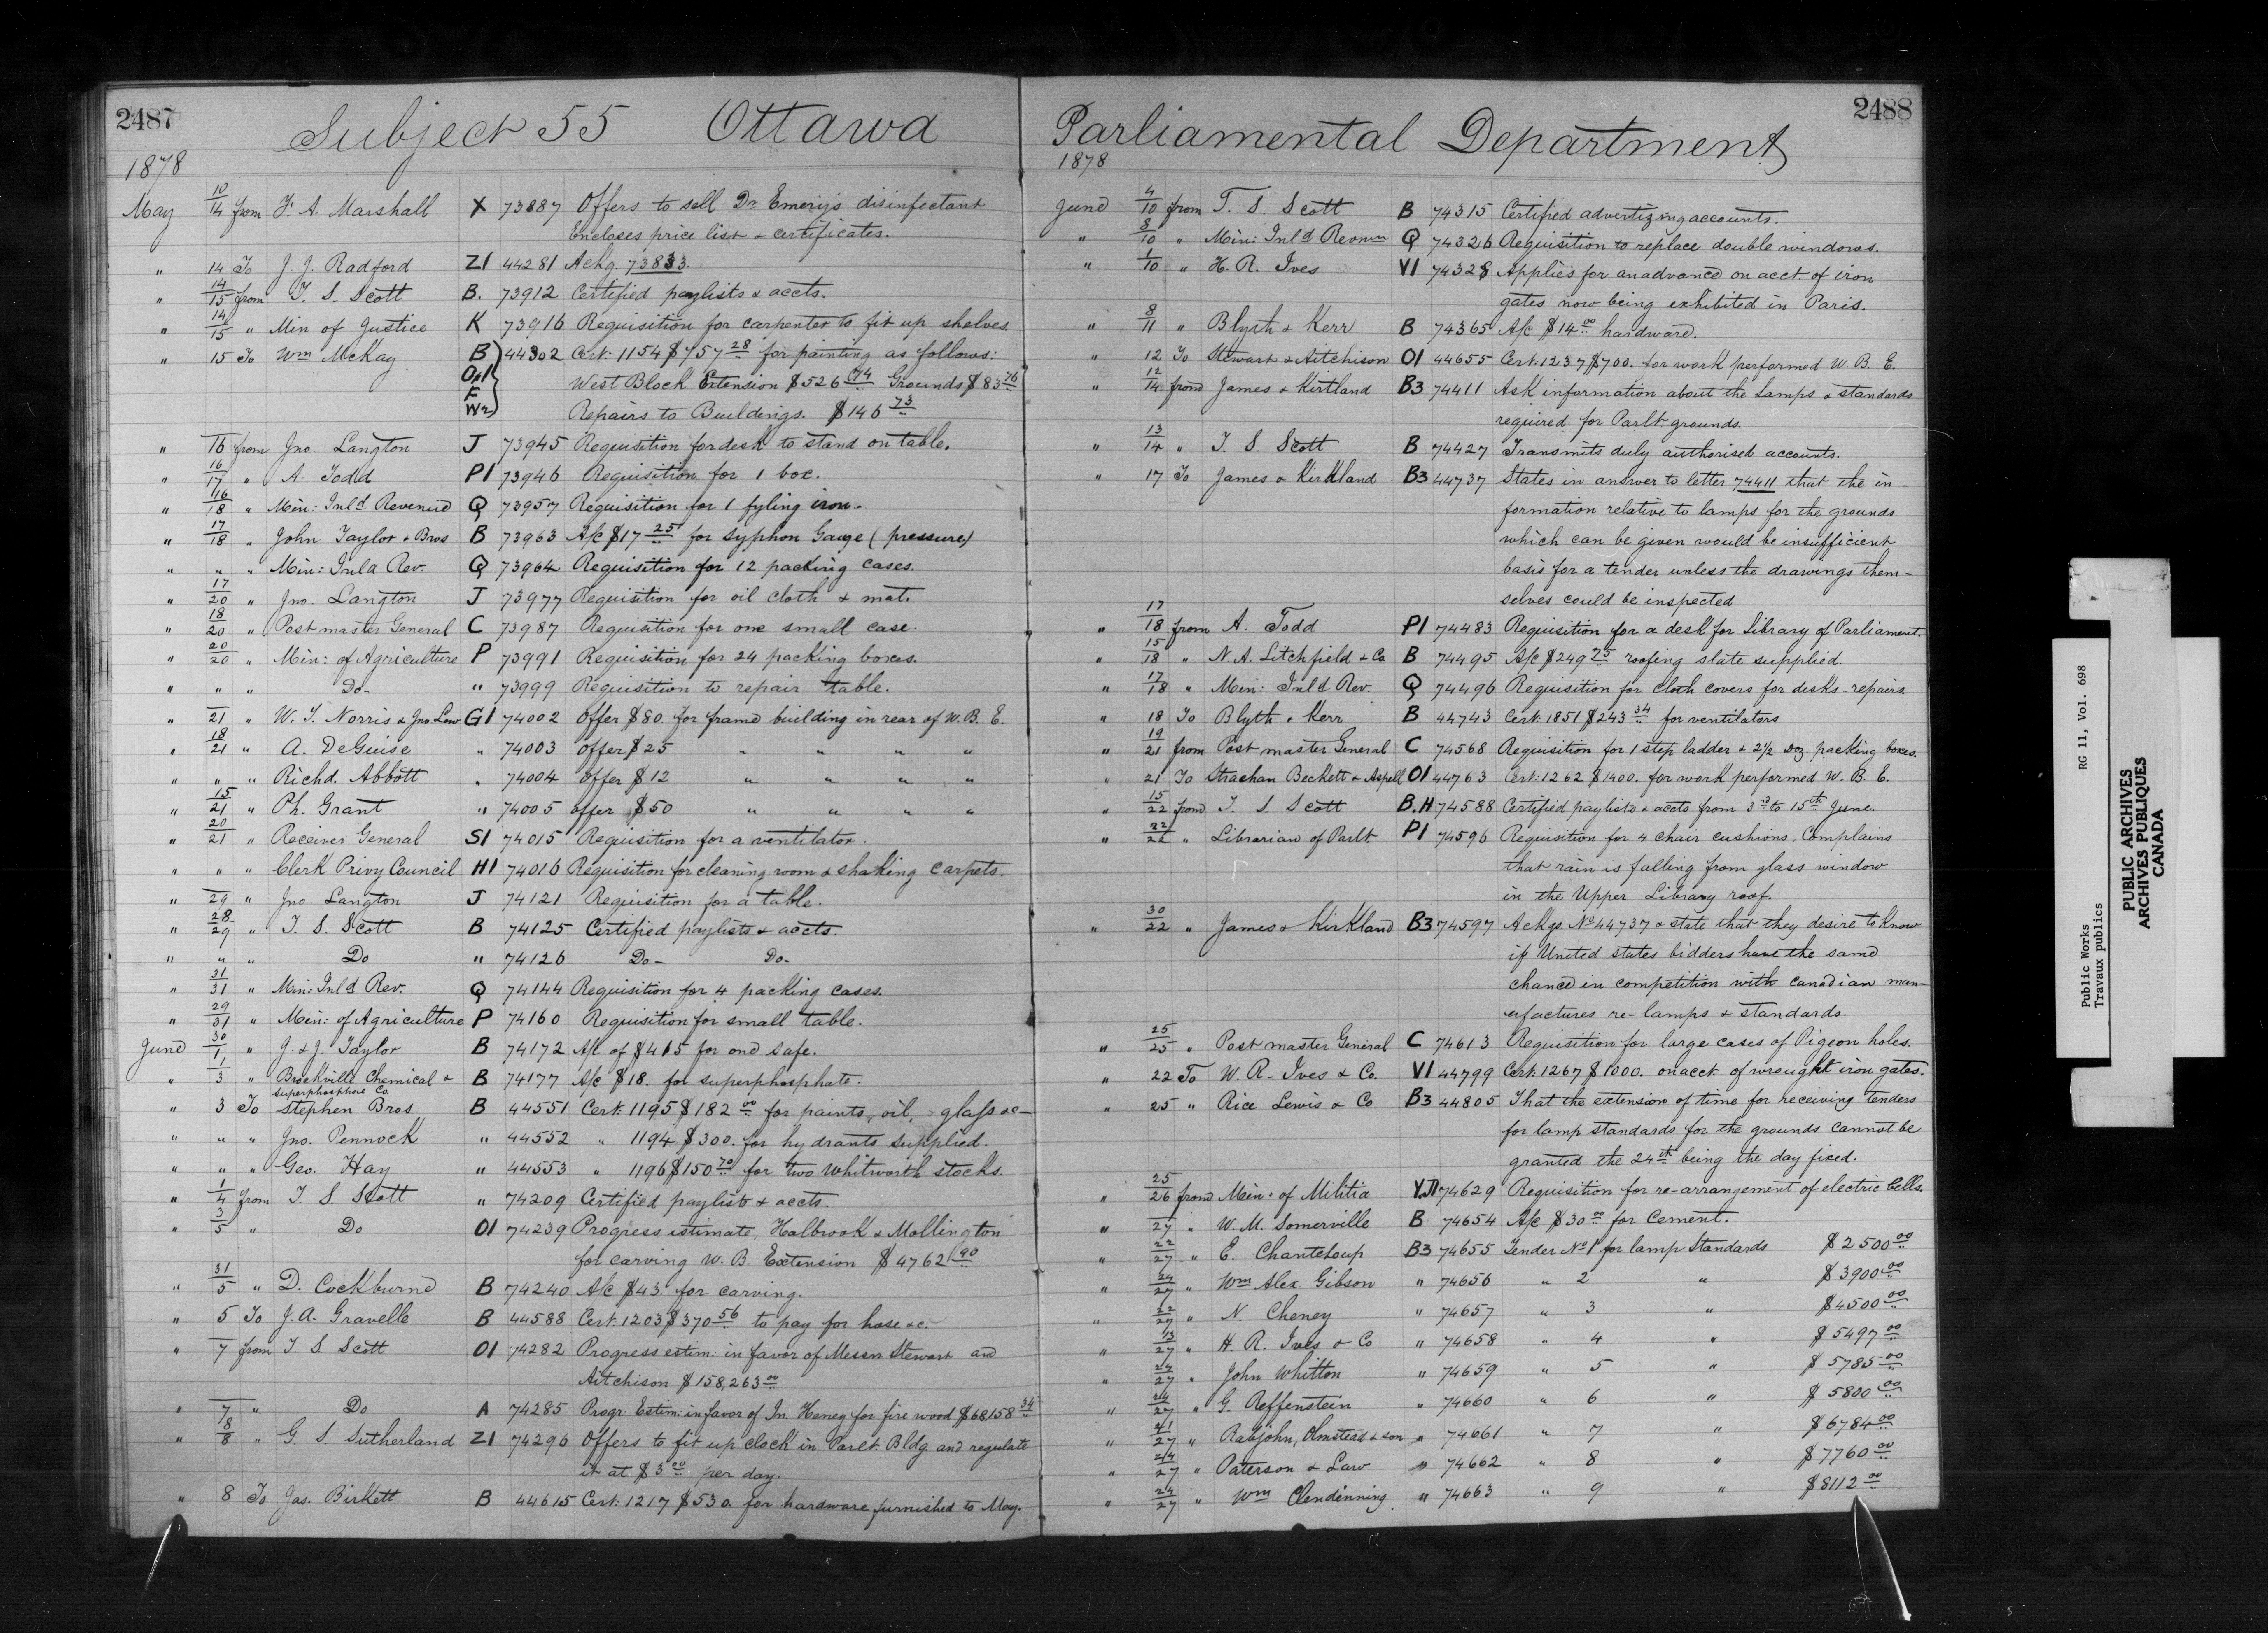 2487
Subject 55 Ottawa
1878
May 10/14 from F. A. Marshall X 73887 Offers to sell Dr Emery's disinfectant
Encloses price list & certificates.
" 14 To J. J. Radford Z1 44281 Ackg. 73833.
" 14/15 from T. S. Scott B. 73912 Certified paylists & accts.
" 14/15 " Min of Justice K 73916 Requisition for carpenter to fit up shelves
" 15 To Wm McKay B 44302 Cert: 1154 $757 28 for painting as follows:
O1 West Block Extension $526 74 Grounds $83 76
F
W2 Repairs to Buildings. $146 73
" 16 from Jno. Langton J 73945 Requisition for desk to stand on table.
" 16/17 " A. Todd P1 73946 Requisition for 1 box.
" 16/18 " Min: Inld Revenue Q 73957 Requisition for 1 fyling iron.
" 17/18 " John Taylor & Bros B 73963 A/c $17 25 for Syphon Gauge (pressure)
" " " Min: Inld Rev. Q 73964 Requisition for 12 packing cases.
" 17/20 " Jno. Langton J 73977 Requisition for oil cloth & mat.
" 18/20 " Post master General C 73987 Requisition for one small case.
" 20/20 " Min: of Agriculture P 73991 Requisition for 24 packing boxes.
" " " Do- " 73999 Requisition to repair table.
" 21 " W. T. Norris & Jno. Law G1 74002 Offer $80. for frame building in rear of W. B. E.
" 18/21 " A. DeGuise " 74003 offer $25 " " " "
" " " Richd. Abbott " 74004 offer $12 " " " "
" 15/21 " Ph. Grant " 74005 offer $50 " " " "
" 20/21 " Receiver General S1 74015 Requisition for a ventilator.
" " " Clerk Privy Council H1 74016 Requisition for cleaning room & shaking carpets.
" 29 " Jno. Langton J 74121 Requisition for a table.
" 28/29 " T. S. Scott B 74125 Certified paylists & accts.
" " " Do " 74126 Do- Do-
" 31/31 " Min: Inld Rev. Q 74144 Requisition for 4 packing cases.
" 29/31 " Min: of Agriculture P 74160 Requisition for small table.
June 30/1 " J. & J. Taylor B 74172 A/c of $415 for one safe.
" 1/3 " Brockville Chemical & B 74177 A/c $18. for superphosphate.
Superphosphate Co.
" 3 To Stephen Bros B 44551 Cert: 1195 $182 00 for paints, oil, glass &c-
" " " Jno. Pennock " 44552 " 1194 $300. for hydrants supplied.
" " " Geo. Hay " 44553 " 1196 $150 70 for two Whitworth stocks.
" 1/4 from T. S. Scott " 74209 Certified paylists & accts.
" 3/5 " Do O1 74239 Progress estimate, Holbrook & Mollington
for carving W. B. Extension $4762 90
" 31/5 " D. Cockburne B 74240 A/c $43 for carving.
" 5 To J. A. Gravelle B 44588 Cert. 1203 $370 56 to pay for hose &c.
" 7 from T. S Scott O1 74282 Progress estim: in favor of Messrs Stewart and
Aitchison $158,263 00
" 7 " Do A 74285 Progr. Estim: in favor of Jn. Heney for fire wood $68,158 34
" 8/8 " G. S. Sutherland Z1 74296 Offers to fit up clock in Parlt. Bldg. and regulate
it at $3 00 per day.
" 8 To Jas. Birkett B 44615 Cert: 1217 $530. for hardware furnished to May.
2488
Parliamental Department
1878
June 4/10 from T. S. Scott B 74315 Certified advertizing accounts.
" 8/10 " Min: Inld Revenue Q 74326 Requisition to replace double windows.
" 1/10 " H. R. Ives V1 74328 Applies for an advance on acct of iron
gates now being exhibited in Paris.
" 8/11 " Blyth & Kerr B 74365 A/c $14 00 hardware.
" 12 To Stewart & Aitchison O1 44655 Cert. 1237 $700. for work performed W. B. E.
" 12/14 from James & Kirtland B3 74411 Ask information about the Lamps & standards
required for Parlt grounds.
" 13/14 " T. S Scott B 74427 Transmits duly authorised accounts.
" 17 To James & Kirkland B3 44737 States in answer to letter 74411 that the in-
formation relative to lamps for the grounds
which can be given would be insufficient
basis for a tender unless the drawings them-
selves could be inspected
" 17/18 from A. Todd P1 74483 Requisition for a desk for Library of Parliament.
" 15/18 " N. A. Litchfield & Co B 74495 A/c $249 75 roofing slate supplied.
" 17/18 " Min: Inld Rev. Q 74496 Requisition for cloth covers for desks - repairs.
" 18 To Blyth & Kerr B 44743 Cert: 1851 $243 34 for ventilators
" 19/21 from Post master General C 74568 Requisition for 1 step ladder & 2 1/2 Doz packing boxes.
" 21 To Strachan Beckett & Aspell O1 44763 Cert: 1262 $1400. for work performed W. B. E.
" 15/22 from T. S Scott B.H 74588 Certified paylists & accts from 3d to 15th June.
" 22/22 " Librarian of Parlt P1 74596 Requisition for 4 chair cushions, Complains
that rain is falling from glass window
in the Upper Library roof.
" 30/22 " James & Kirkland B3 74597 Ackgs. No 44737 & state that they desire to know
if United states bidders have the same
chance in competition with Canadian man-
ufactures re- lamps & standards.
" 25/25 " Post master General C 74613 Requisition for large cases of Pigeon holes.
" 22 To W. R. Ives & Co. V1 44799 Cert: 1267 $1000. on acct of wrought iron gates.
" 25 " Rice Lewis & Co B3 44805 That the extension of time for receiving tenders
for lamp standards for the grounds cannot be
granted the 24th being the day fixed.
" 25/26 from Min: of Militia 74629 Requisition for re-arrangement of electric Cells.
" 27 " W. M. Somerville B 74654 A/c $30 00 for Cement.
" 22/27 " E. Chanteloup B3 74655 Tender No 1 for lamp Standards $2500 00
" 24/27 " Wm Alex. Gibson " 74656 " 2 " $3900 00
" 22/27 " N. Cheney " 74657 " 3 " $4500 00
" 13/27 " H. R. Ives & Co " 74658 " 4 " $5497 00
" 24/27 " John Whitton " 74659 " 5 " $5785 00
" 24/27 " G. Reffenstein " 74660 " 6 " $5800 00
" 21/27 " Rabjohn, Olmstead & son " 74661 " 7 " $6784 00
" 24/27 " Paterson & Law " 74662 " 8 " $7760 00
" 24/27 " Wm Clendinning " 74663 " 9 " $8112 00
Public Works RG 11, Vol. 698
Travaux publics
PUBLIC ARCHIVES
ARCHIVES PUBLIQUES
CANADA